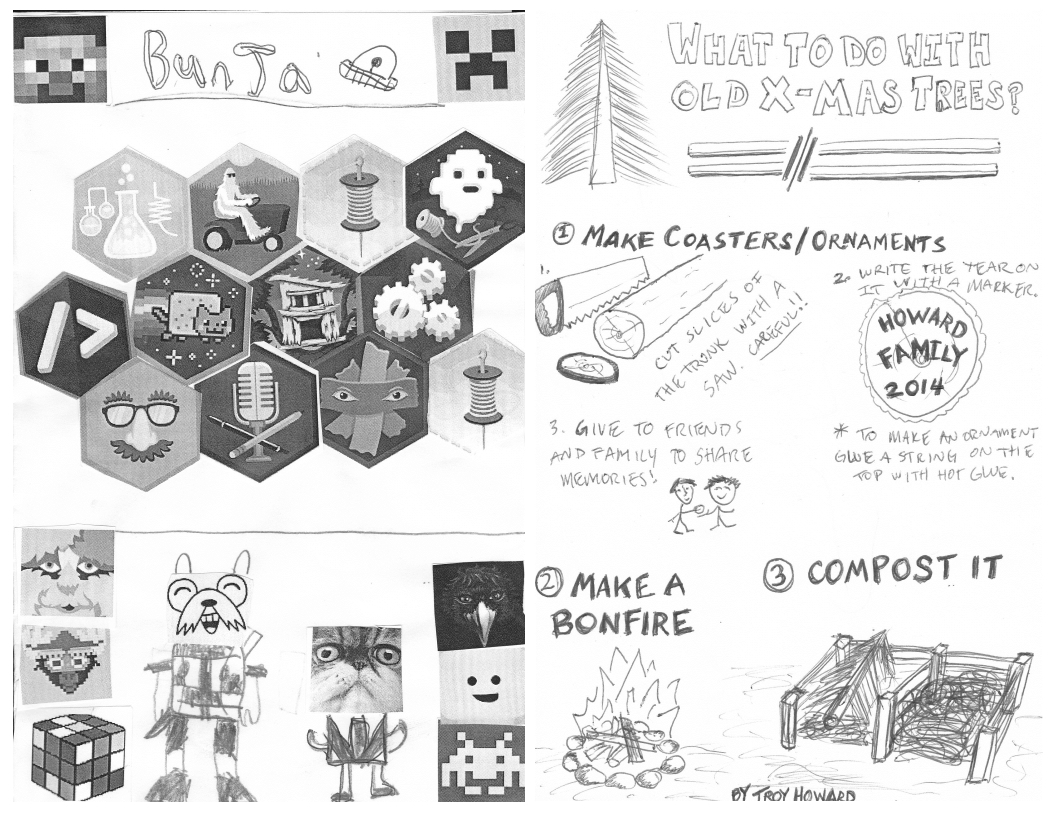 BunJa
WHAT TO DO WITH
OLD X-MAS TREES?
① MAKE COASTERS/ORNAMENTS
1.
CUT SLICES OF
THE TRONK WITH A
SAW. CAREFUL!!
2. WRITE THE YEAR ON
IT WITH A MARKER.
HOWARD
FAMILY
2014
3. GIVE TO FRIENDS
AND FAMILY TO SHARE
MEMORIES!
* TO MAKE AN ORNAMENT
GLUE A STRING ON THE
TOP WITH HOT GLUE.
② MAKE A
BONFIRE
③ COMPOST IT
BY TROY HOWARD